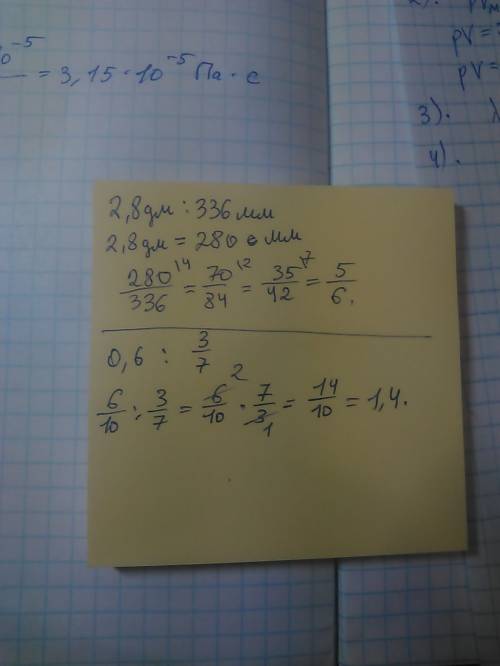 0⁻⁵
— = 3,15 · 10⁻⁵ Па · с
pV
pV =
pV =
3).
4).
2,8дм : 336мм
2,8дм = 280 мм
280/336 \4 = 70/84 \2 = 35/42 \7 = 5/6.
0,6 : 3/7
6/10 : 3/7 = 6/10 2 · 7/3 1 = 14/10 = 1,4.